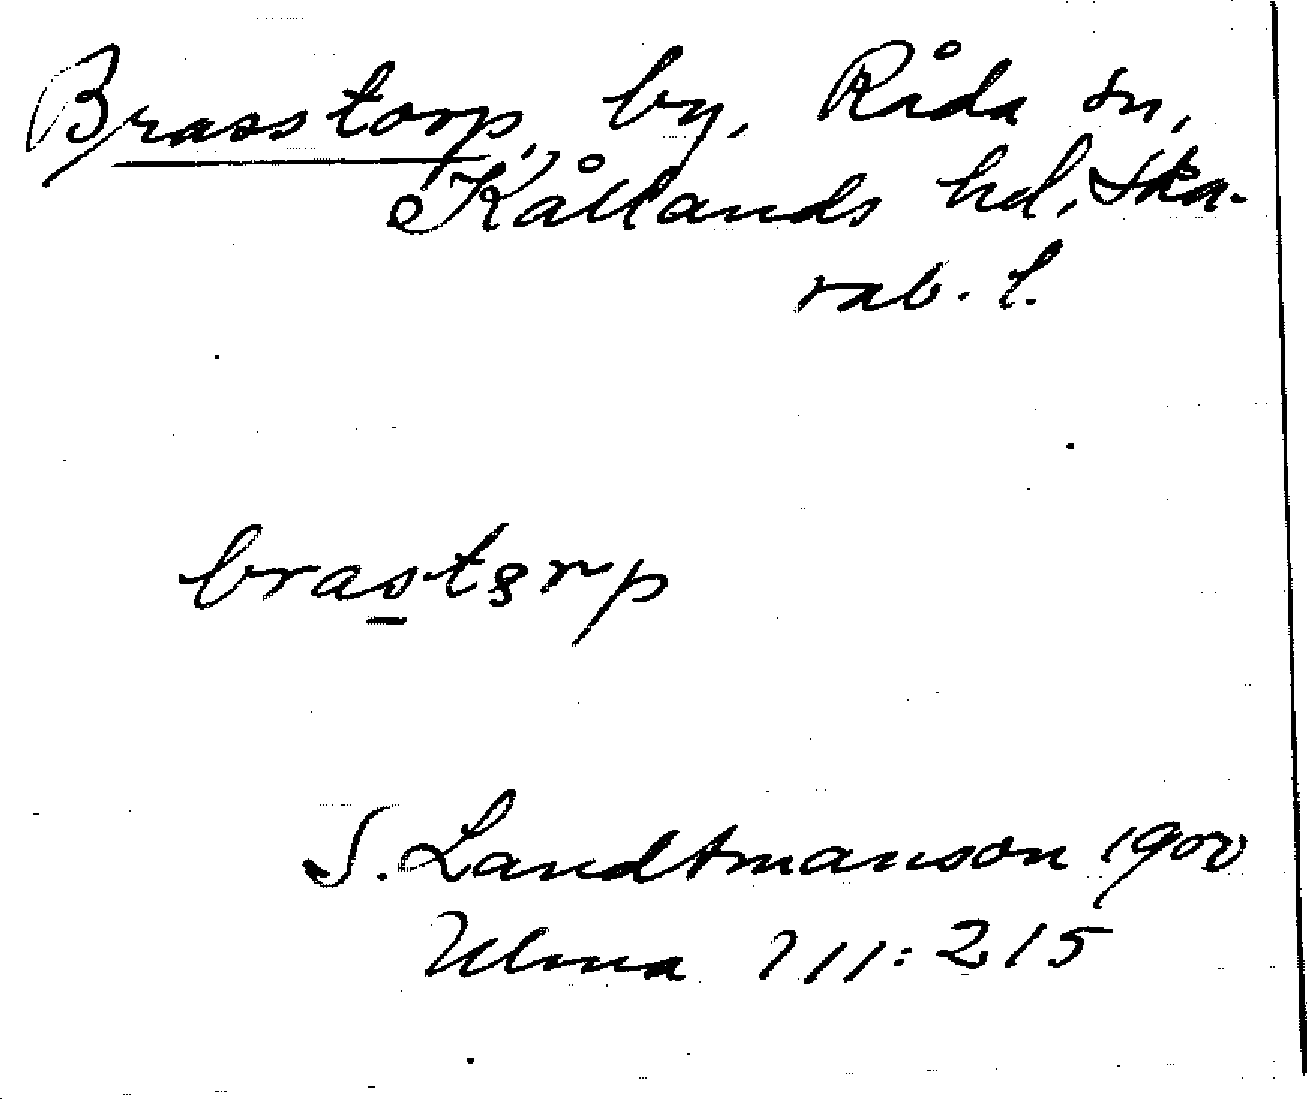 Brasstorp, by, Råda sn,
Kållands hd, Ska-
rab. l.
brastørp
S. Landtmanson 1900
Ulma 111:215